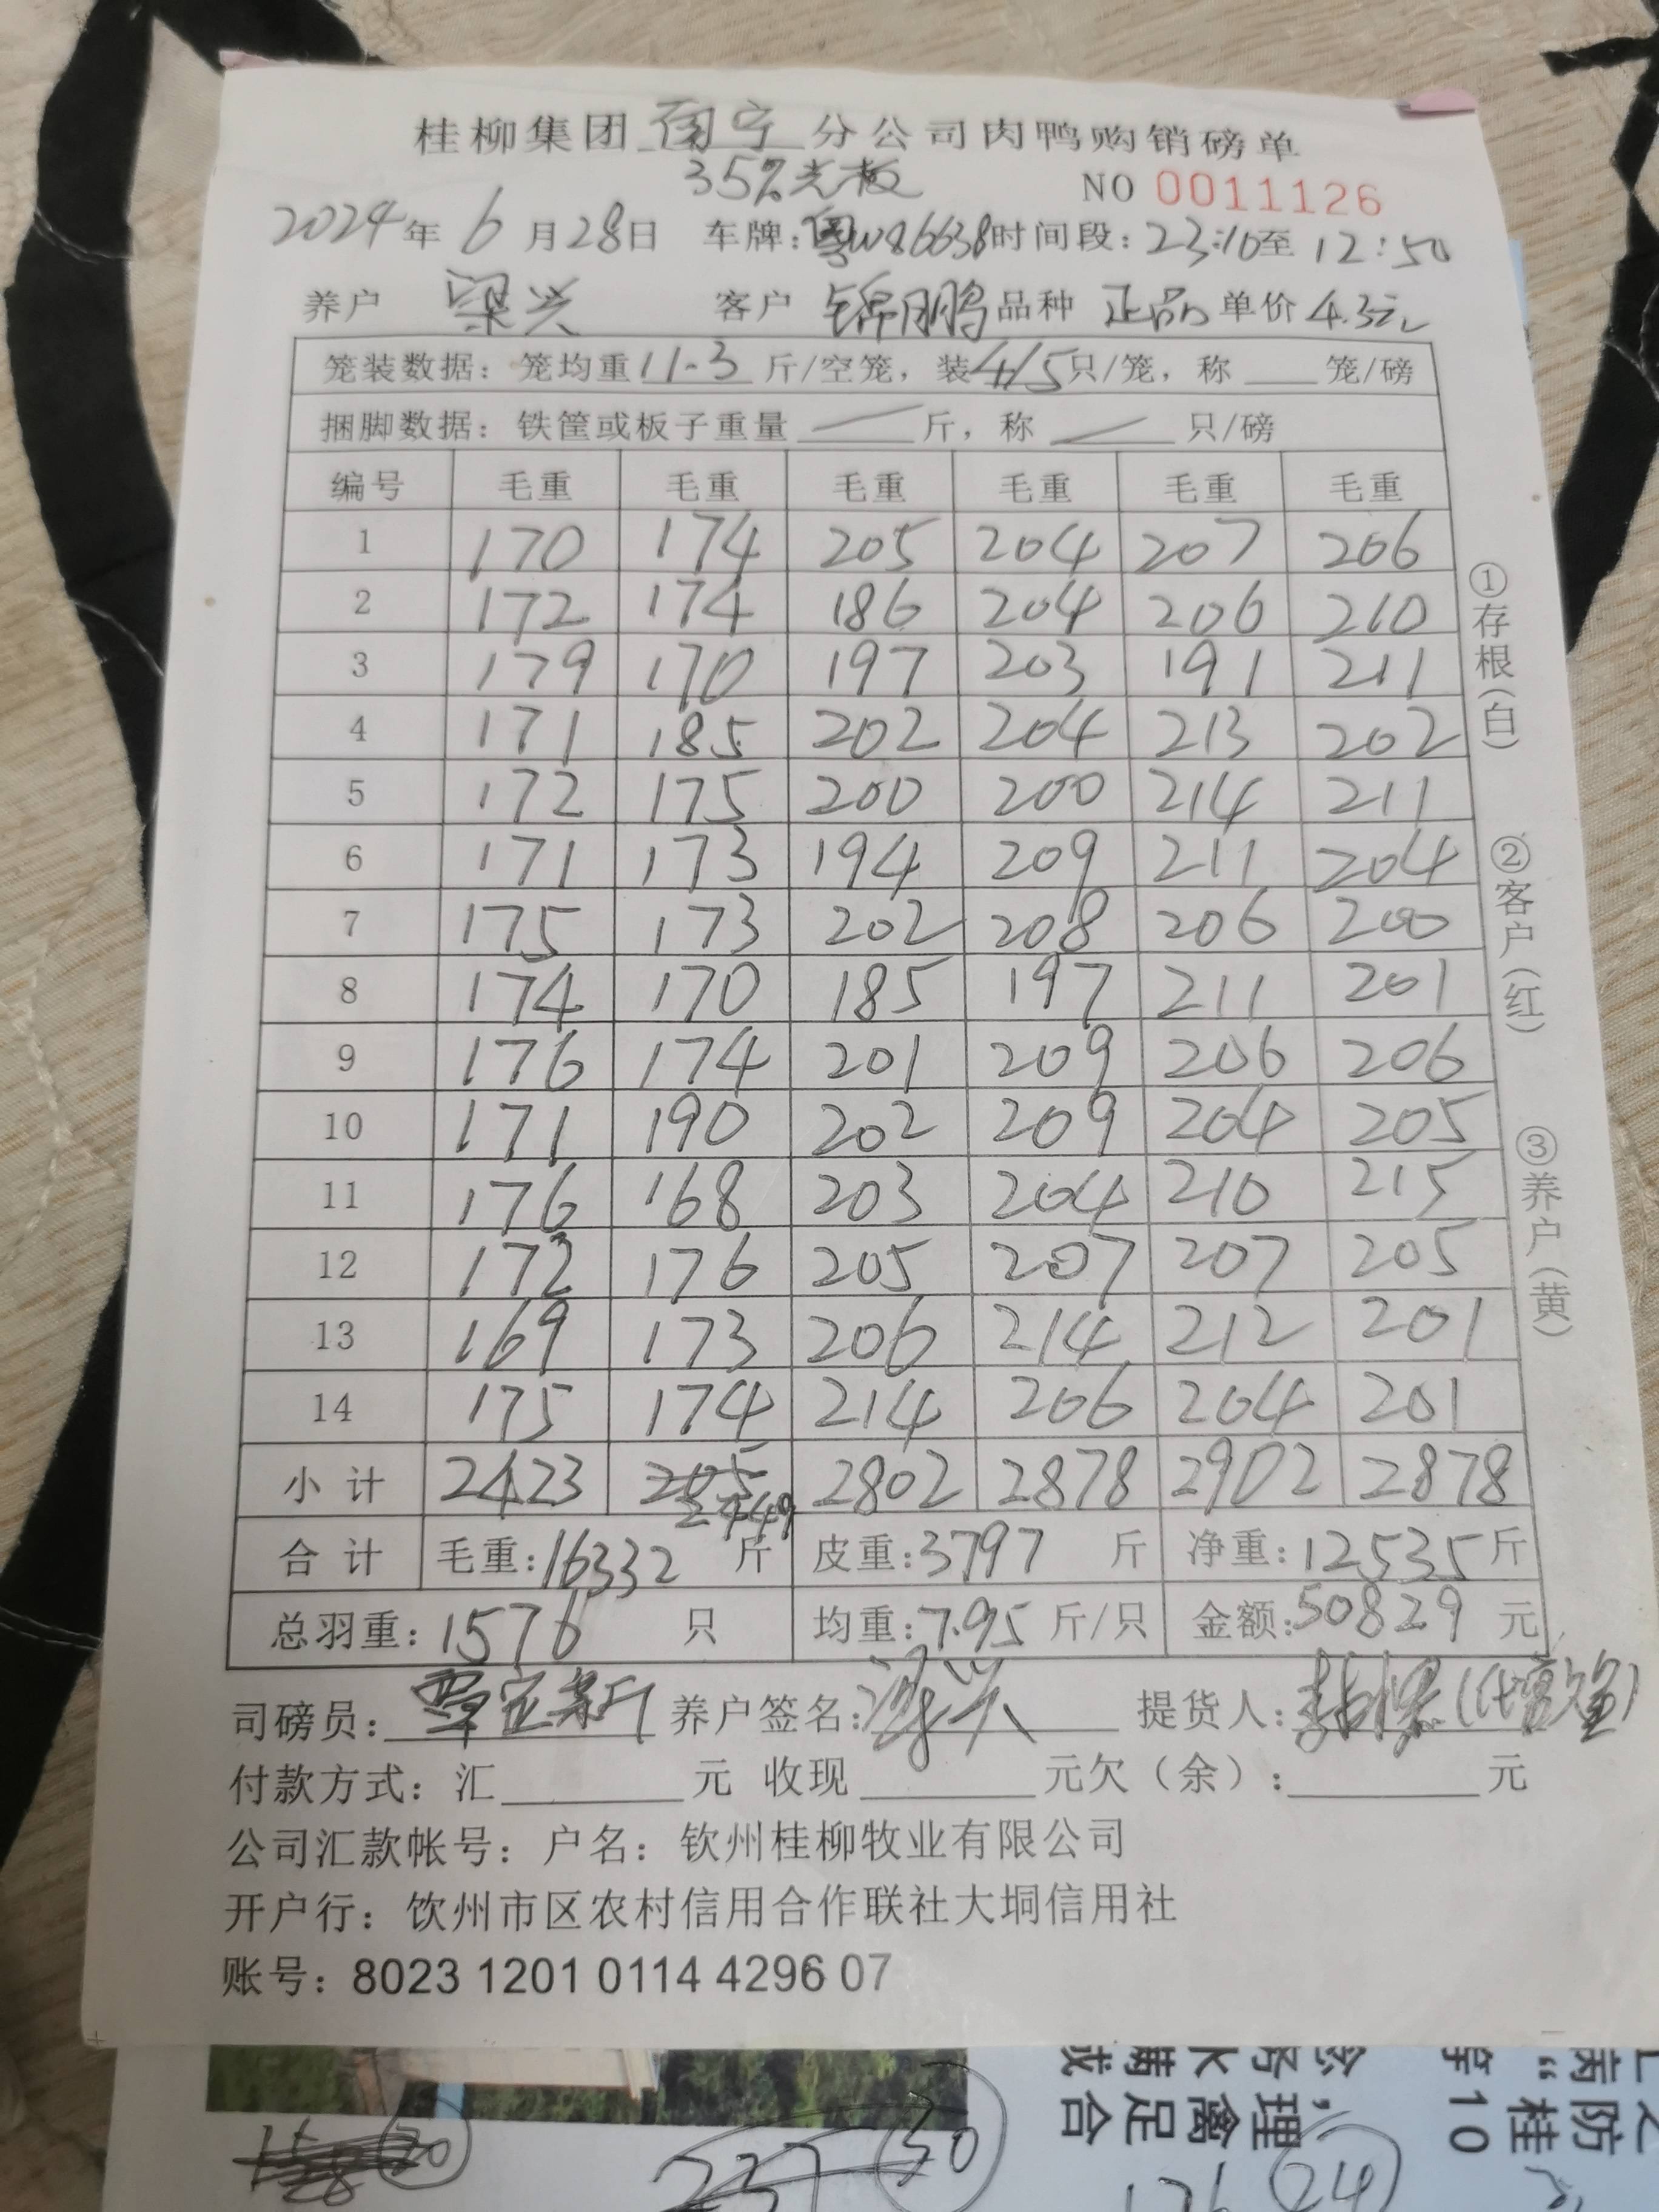 桂柳集团 南宁 分公司肉鸭购销磅单
35%光板 NO 0011126
2024年 6 月 28日 车牌: 粤W86638 时间段: 23:10至 12:50
养户 梁兴 客户 锦鹏 品种 正品 单价 4.3元
笼装数据: 笼均重 11.3 斤/空笼, 装 4/5 只/笼, 称 笼/磅
捆脚数据: 铁筐或板子重量 / 斤, 称 / 只/磅
编号 毛重 毛重 毛重 毛重 毛重 毛重
1 170 174 205 204 207 206
2 172 174 186 204 206 210
3 179 170 197 203 191 211
4 171 185 202 204 213 202
5 172 175 200 200 214 211
6 171 173 194 209 211 204
7 175 173 202 208 206 200
8 174 170 185 197 211 201
9 176 174 201 209 206 206
10 171 190 202 209 204 205
11 176 168 203 204 210 215
12 172 176 205 207 207 205
13 169 173 206 214 212 201
14 175 174 214 206 204 201
小计 2423 2449 2802 2878 2902 2878
合计 毛重: 16332 斤 皮重: 3797 斤 净重: 12535 斤
总羽重: 1576 只 均重: 7.95 斤/只 金额: 50829 元
①存根(白)
②客户(红)
③养户(黄)
司磅员: 养户签名: 梁兴 提货人:
付款方式: 汇 元 收现 元欠(余): 元
公司汇款帐号: 户名: 钦州桂柳牧业有限公司
开户行: 饮州市区农村信用合作联社大垌信用社
账号: 8023 1201 0114 4296 07
30
24